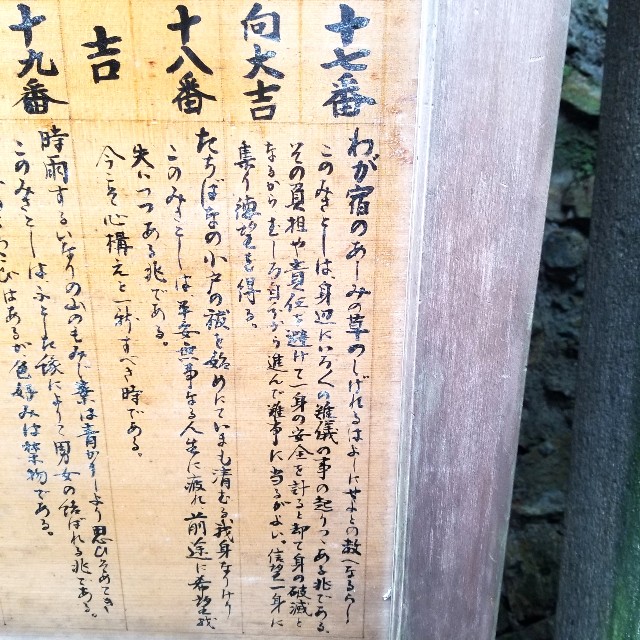 十七番
向大吉
わが宿のあしみの草のしげれるはよしにせよとの教へなるらん
このみさとしは身辺にいろ〱の難儀の事の起りつゝある兆である。
その負担や責任を避けて一身の安全を計ると却て身の破滅と
なるからむしろ身から進んで難事に当るがよい、信望一身に
集り徳望を得る。
十八番
吉
たちばなの小戸の祓を始めにていまも清むる我身なりけり
このみさとしは平安無事なる人生に疲れ前途に希望を
失いつつある兆である。
今こそ心構えを一新すべき時である。
十九番
時雨するいなりの山のもみぢ葉は青かりしより思ひそめてき
このみさとしはふとした縁によりて男女の結ばれる兆である。
はあるが色好みは禁物である。